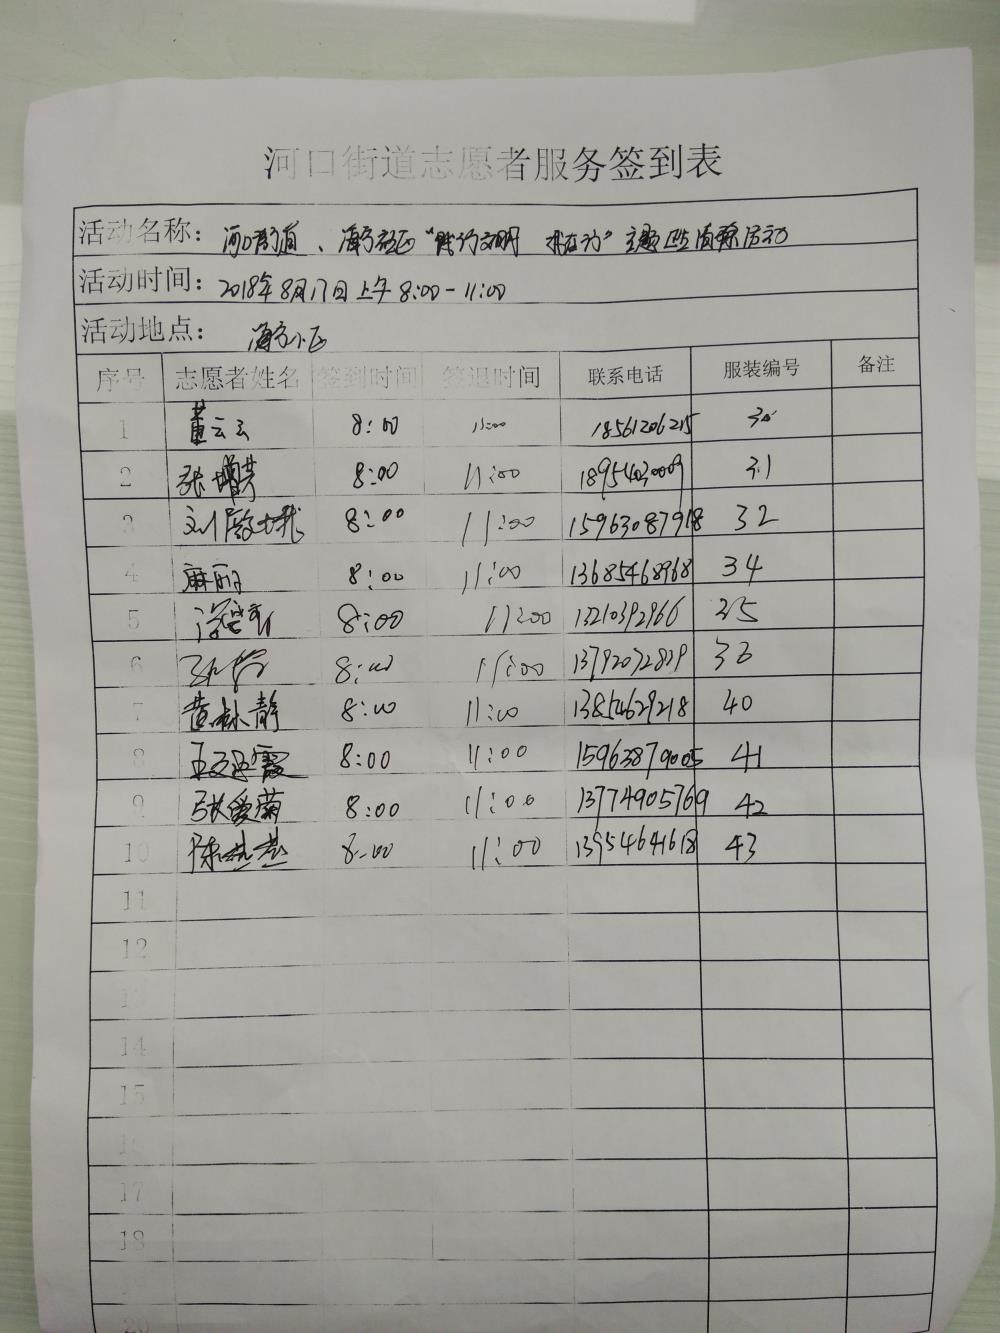 河口街道志愿者服务签到表
活动名称： 河口街道、海宁社区“践行文明 我在行”主题 清除活动
活动时间： 2018年8月17日上午8:00-11:00
活动地点： 海宁小区
序号 志愿者姓名 签到时间 签退时间 联系电话 服装编号 备注
1 董云云 8:00 11:00 18561206215 30
2 张增芳 8:00 11:00 18954030009 31
3 8:00 11:00 15963087918 32
4 麻丽 8:00 11:00 13685468968 34
5 8:00 11:00 13210392966 35
6 8:00 11:00 13792072829 36
7 黄林静 8:00 11:00 13854629218 40
8 霞 8:00 11:00 15963879005 41
9 张爱菊 8:00 11:00 13774905769 42
10 陈燕燕 8:00 11:00 13954641618 43
11
12
13
14
15
16
17
18
19
20